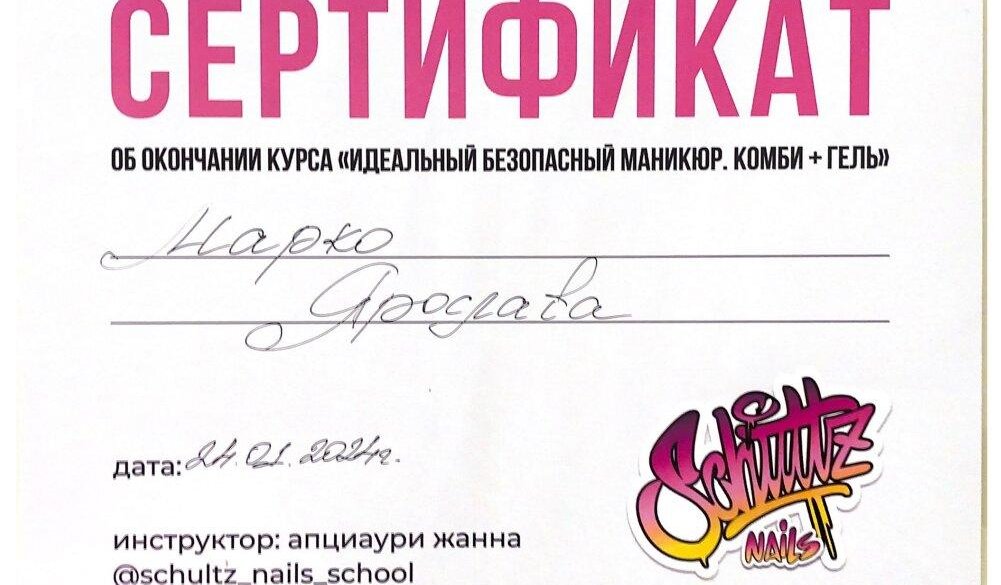 СЕРТИФИКАТ
ОБ ОКОНЧАНИИ КУРСА «ИДЕАЛЬНЫЙ БЕЗОПАСНЫЙ МАНИКЮР. КОМБИ + ГЕЛЬ»
Марко
Ярослава
дата: 24.01.2024г.
Schultz
NAILS
инструктор: апциаури жанна
@schultz_nails_school